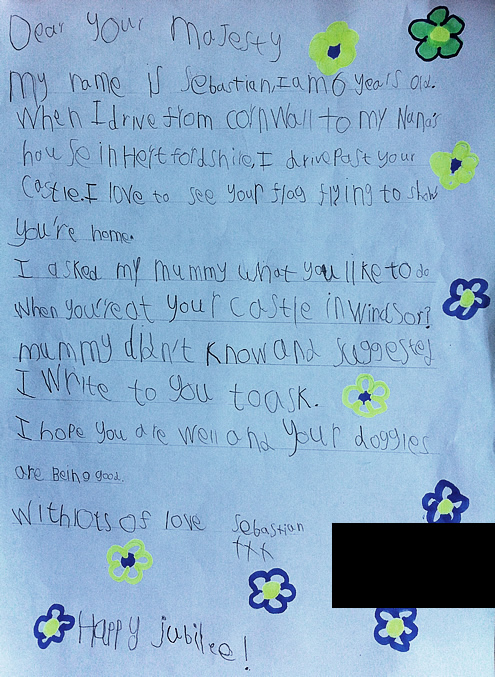 Dear Your Majesty
My name is Sebastian, I am 6 years old.
When I drive from cornwall to my Nana's
house in Hertfordshire, I drive Past your
Castle. I love to see your flag flying to show
you're home.
I asked my mummy what you like to do
when you're at your castle in Windsor?
mummy didn't know and suggested
I write to you to ask.
I hope you are well and your doggies
are Being good.
With lots of love Sebastian
xxx
Happy jubilee!